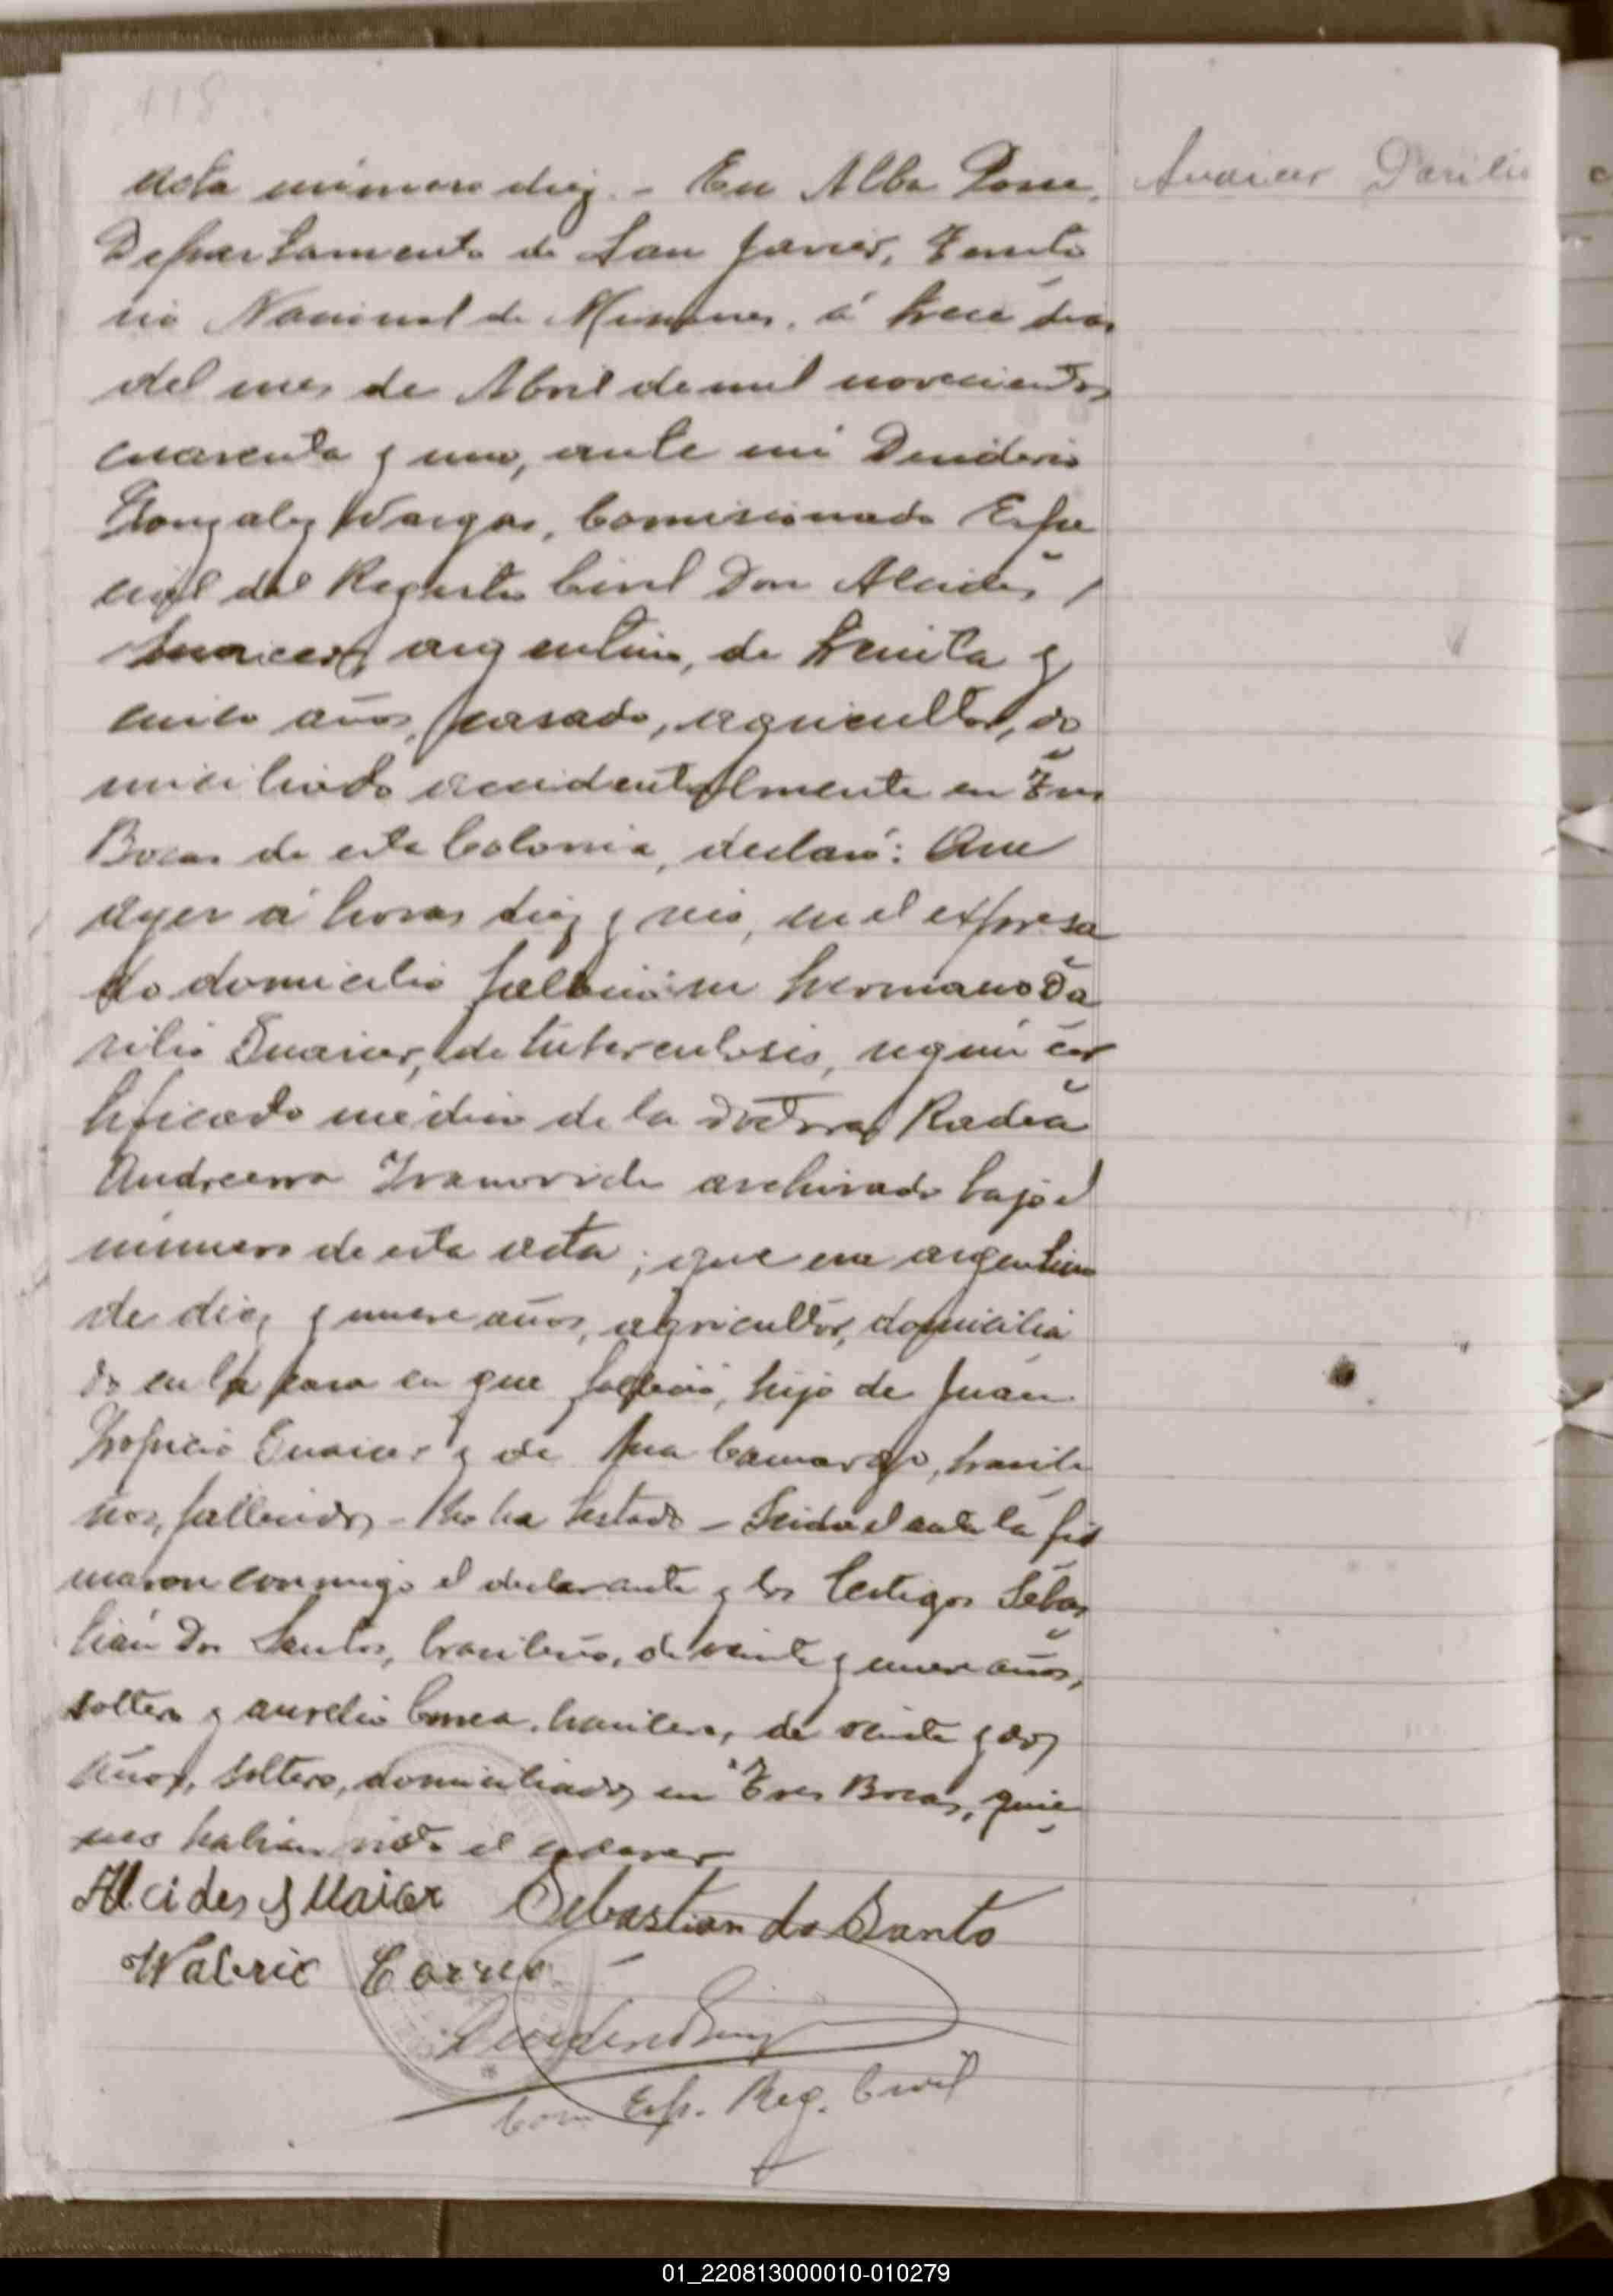 118
Acta número diez. - En Alba Posse,
Departamento de San Javier, Territo
rio Nacional de Misiones, á trece dias
del mes de Abril de mil novecientos
cuarenta y uno, ante mi Desiderio
Gonzalez Vargas, Comisionado Espe
cial del Registro Civil Don Alcides
argentino, de treinta y
cinco años, casado, agricultor, do
miciliado accidentalmente en Tres
Bocas de esta Colonia, declaró: Que
ayer á horas diez y seis, en el expresa
do domicilio falleció su hermano Da
rilio de tuberculosis, según cer
tificado médico de la doctora Radea
archivado bajo el
número de esta acta; que era argentino
de diez y nueve años, agricultor, domicilia
do en la casa en que falleció, hijo de Juan
y de Camargo, brasile
ños, fallecidos - No ha testado - Leida el acta la fir
maron conmigo el declarante y los testigos Sebas
tián Dos Santos, brasileño, de veinte y nueve años,
soltero y aurelio Correa, brasilero, de veinte y dos
años, soltero, domiciliados en Tres Bocas, quie
nes habian visto el cadaver
Alcides Sebastian do Santo
Walerio Correa
Com Esp. Reg. Civil
01_220813000010-010279